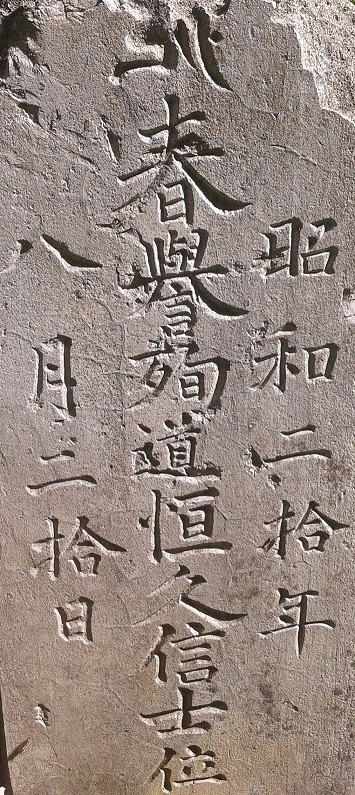 昭和二拾年
春譽殉道恒久信士位
八月二拾日